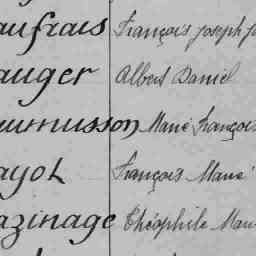 aufrais François Joseph
auger Albert Daniel
aumusson Marie François
ayol François Marie
azinage Théophile